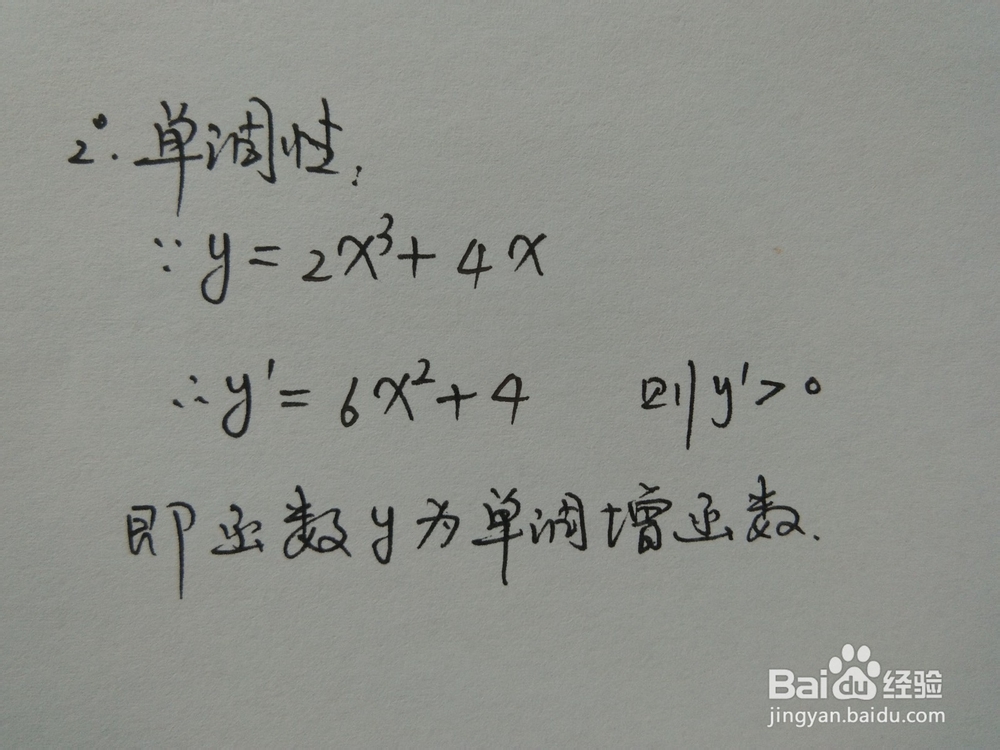 2°. 单调性:
∵ y = 2x³ + 4x
∴ y' = 6x² + 4 则 y' > 0
即函数y为单调增函数.
Baidu经验
jingyan.baidu.com